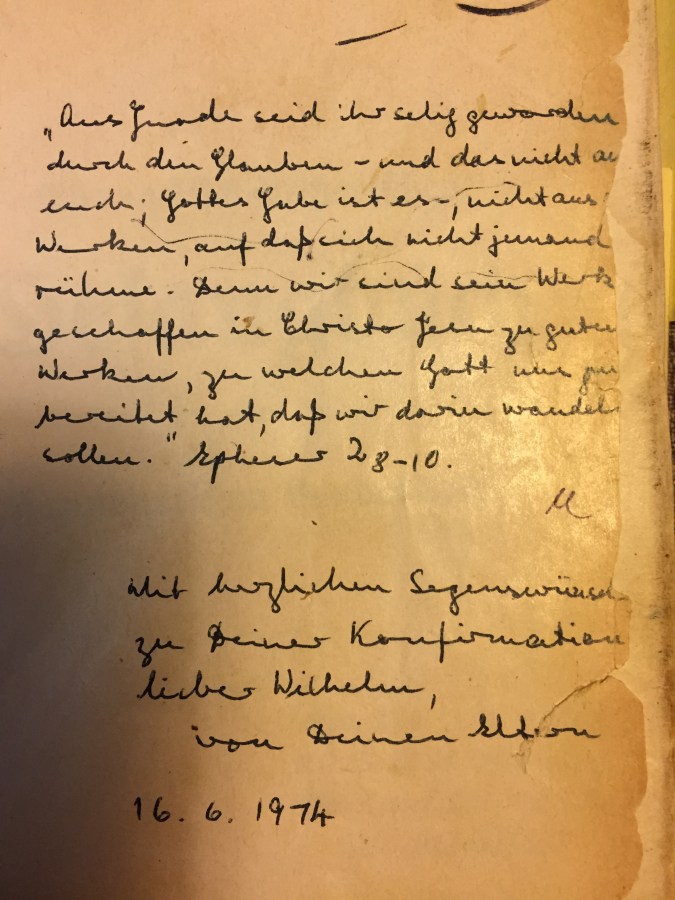 „Aus Gnade seid ihr selig geworden
durch den Glauben – und das nicht au
euch; Gottes Gabe ist es –, nicht aus
Werken, auf daß sich nicht jemand
rühme. Denn wir sind sein Werk
geschaffen in Christo Jesu zu guten
Werken, zu welchen Gott uns zu
bereitet hat, daß wir darin wandel
sollen." Epheser 2 8–10.
Mit herzlichen Segenswünsch
zu Deiner Konfirmation
lieber Wilhelm,
von Deinen Eltern
16. 6. 1974